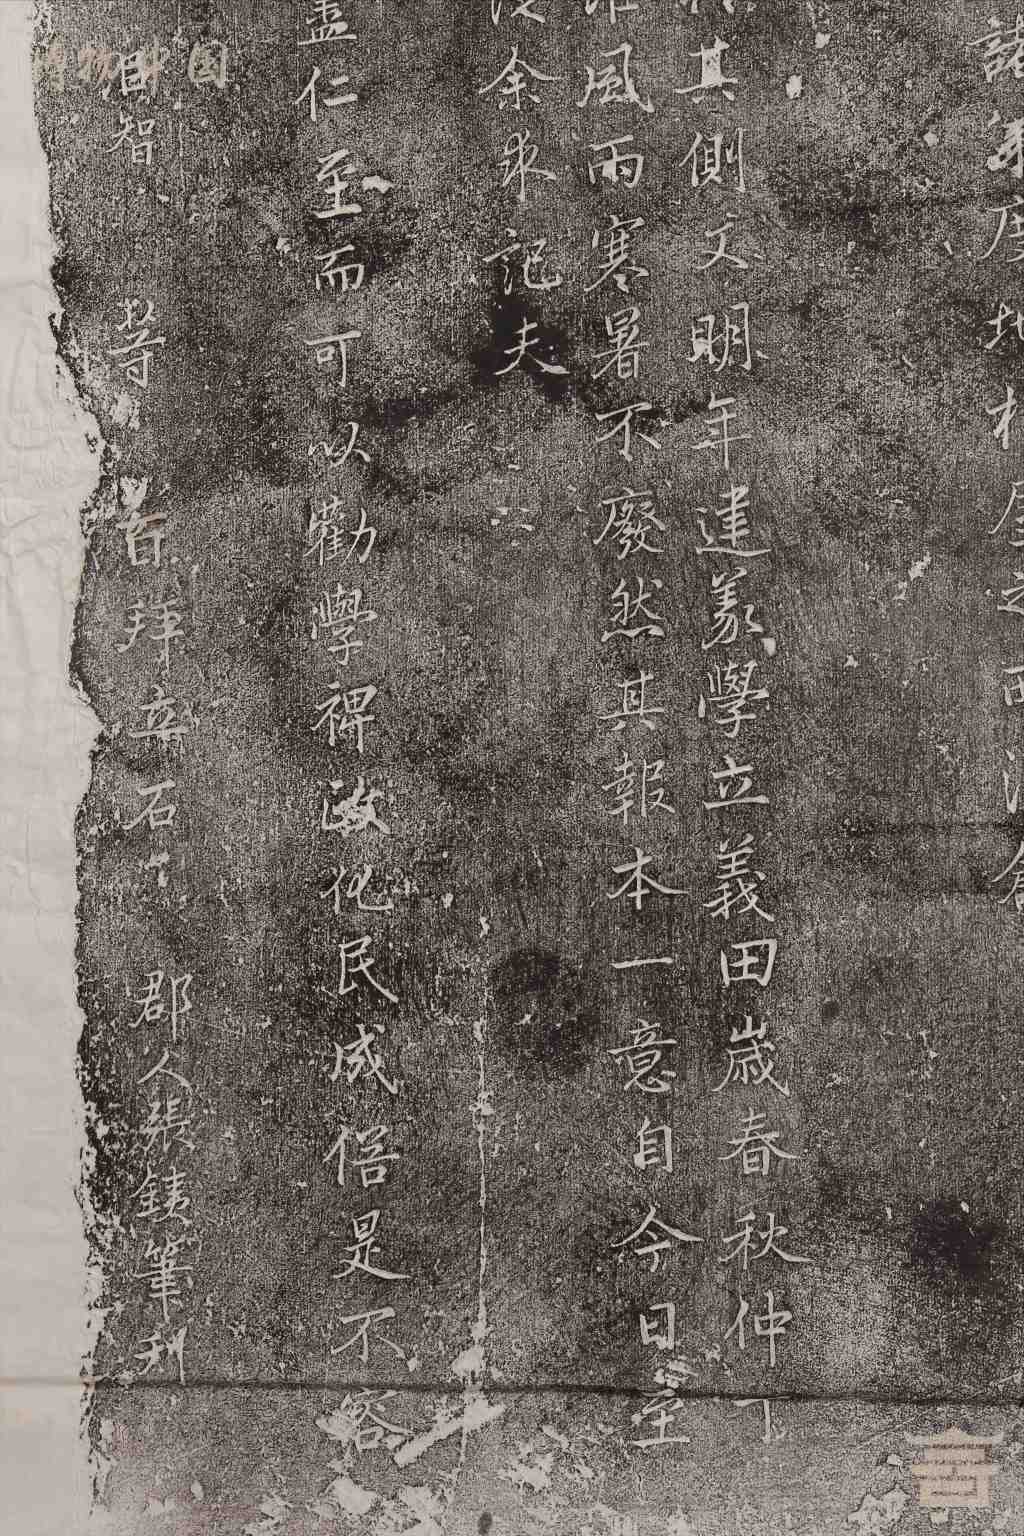 諸
度地
其側文明年建義學立義田歲春秋仲丁
風雨寒暑不廢然其報本一意自今日至
余求記夫
盡仁至而可以勸學裨政化民成俗是不容
智 等 首拜立石 郡人張鐵筆刊